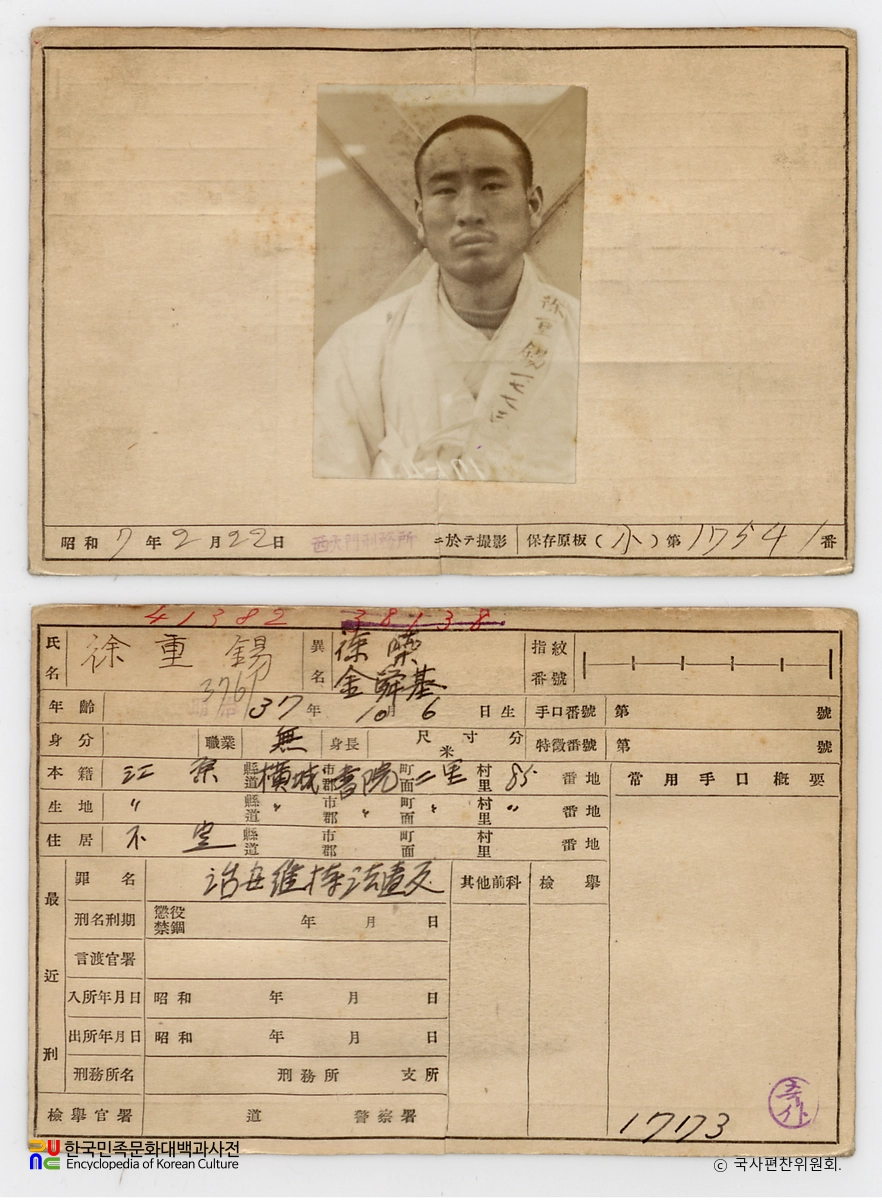 徐重錫
昭和7年2月22日 西大門刑務所 ニ於テ撮影 保存原板(小)第17541番
41382 38138
氏名 徐重錫 異名 徐 金舜基 指紋番號
376
年齡 37年10月6日生 手口番號 第 號
身分 職業 無 身長 尺寸分 米 特徵番號 第 號
本籍 江原 縣道 橫城 市郡 書院 町面 二里 村里 85 番地 常用手口概要
生地 〃 縣道 〃 市郡 〃 町面 〃 村里 〃 番地
住居 不定 縣道 市郡 町面 村里 番地
最近刑 罪名 治安維持法違反 其他前科 檢擧
刑名刑期 懲役 禁錮 年 月 日
言渡官署
入所年月日 昭和 年 月 日
出所年月日 昭和 年 月 日
刑務所名 刑務所 支所
檢擧官署 道 警察署
17173
한국민족문화대백과사전
Encyclopedia of Korean Culture
© 국사편찬위원회.